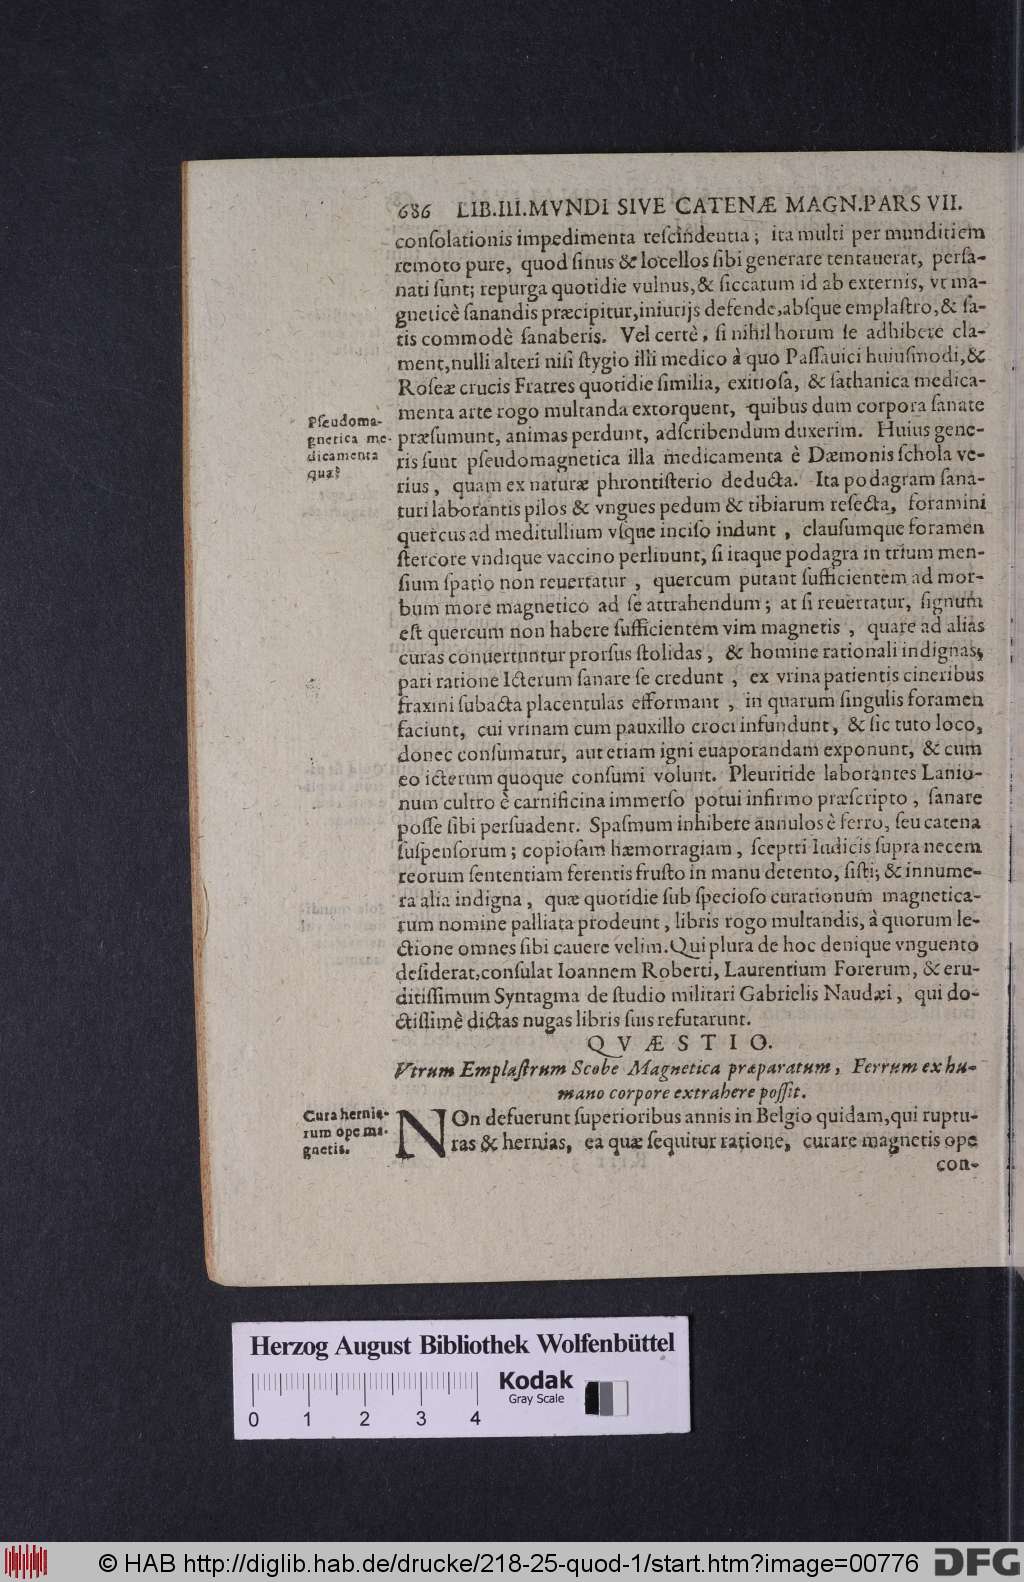 686 LIB.III.MVNDI SIVE CATENÆ MAGN.PARS VII.
conſolationis impedimenta reſcindentia; ita multi per munditiem
remoto pure, quod ſinus & locellos ſibi generare tentauerat, perſa-
nati ſunt; repurga quotidie vulnus,& ſiccatum id ab externis, vt ma-
gneticè ſanandis præcipitur,iniurijs defende,abſque emplaſtro,& ſa-
tis commodè ſanaberis. Vel certè, ſi nihil horum ſe adhibere cla-
ment,nulli alteri niſi ſtygio illi medico à quo Paſſauici huiuſmodi,&
Roſeæ crucis Fratres quotidie ſimilia, exitioſa, & ſathanica medica-
menta arte rogo multanda extorquent, quibus dum corpora ſanare
Pſeudoma-
gnetica me-
dicamenta
quæ?
præſumunt, animas perdunt, adſcribendum duxerim. Huius gene-
ris ſunt pſeudomagnetica illa medicamenta è Dæmonis ſchola ve-
rius, quam ex naturæ phrontiſterio deducta. Ita podagram ſana-
turi laborantis pilos & vngues pedum & tibiarum reſecta, foramini
quercus ad meditullium vſque inciſo indunt, clauſumque foramen
ſtercore vndique vaccino perlinunt, ſi itaque podagra in trium men-
ſium ſpatio non reuertatur, quercum putant ſufficientem ad mor-
bum more magnetico ad ſe attrahendum; at ſi reuertatur, ſignum
eſt quercum non habere ſufficientem vim magnetis, quare ad alias
curas conuertuntur prorſus ſtolidas, & homine rationali indignas;
pari ratione Icterum ſanare ſe credunt, ex vrina patientis cineribus
fraxini ſubacta placentulas efformant, in quarum ſingulis foramen
faciunt, cui vrinam cum pauxillo croci infundunt, & ſic tuto loco,
donec conſumatur, aut etiam igni euaporandam exponunt, & cum
eo icterum quoque conſumi volunt. Pleuritide laborantes Lanio-
num cultro è carnificina immerſo potui infirmo præſcripto, ſanare
poſſe ſibi perſuadent. Spaſmum inhibere annulos è ferro, ſeu catena
ſuſpenſorum; copioſam hæmorragiam, ſceptri Iudicis ſupra necem
reorum ſententiam ferentis fruſto in manu detento, ſiſti; & innume-
ra alia indigna, quæ quotidie ſub ſpecioſo curationum magnetica-
rum nomine palliata prodeunt, libris rogo multandis, à quorum le-
ctione omnes ſibi cauere velim. Qui plura de hoc denique vnguento
deſiderat,conſulat Ioannem Roberti, Laurentium Forerum, & eru-
ditiſſimum Syntagma de ſtudio militari Gabrielis Naudæi, qui do-
ctiſſimè dictas nugas libris ſuis refutarunt.
QVÆSTIO.
Vtrum Emplaſtrum Scobe Magnetica præparatum, Ferrum ex hu-
mano corpore extrahere poſſit.
Cura hernia-
rum ope ma-
gnetis.
NOn defuerunt ſuperioribus annis in Belgio quidam,qui ruptu-
ras & hernias, ea quæ ſequitur ratione, curare magnetis ope
con-
Herzog August Bibliothek Wolfenbüttel
Kodak
Gray Scale
0 1 2 3 4
© HAB http://diglib.hab.de/drucke/218-25-quod-1/start.htm?image=00776
DFG